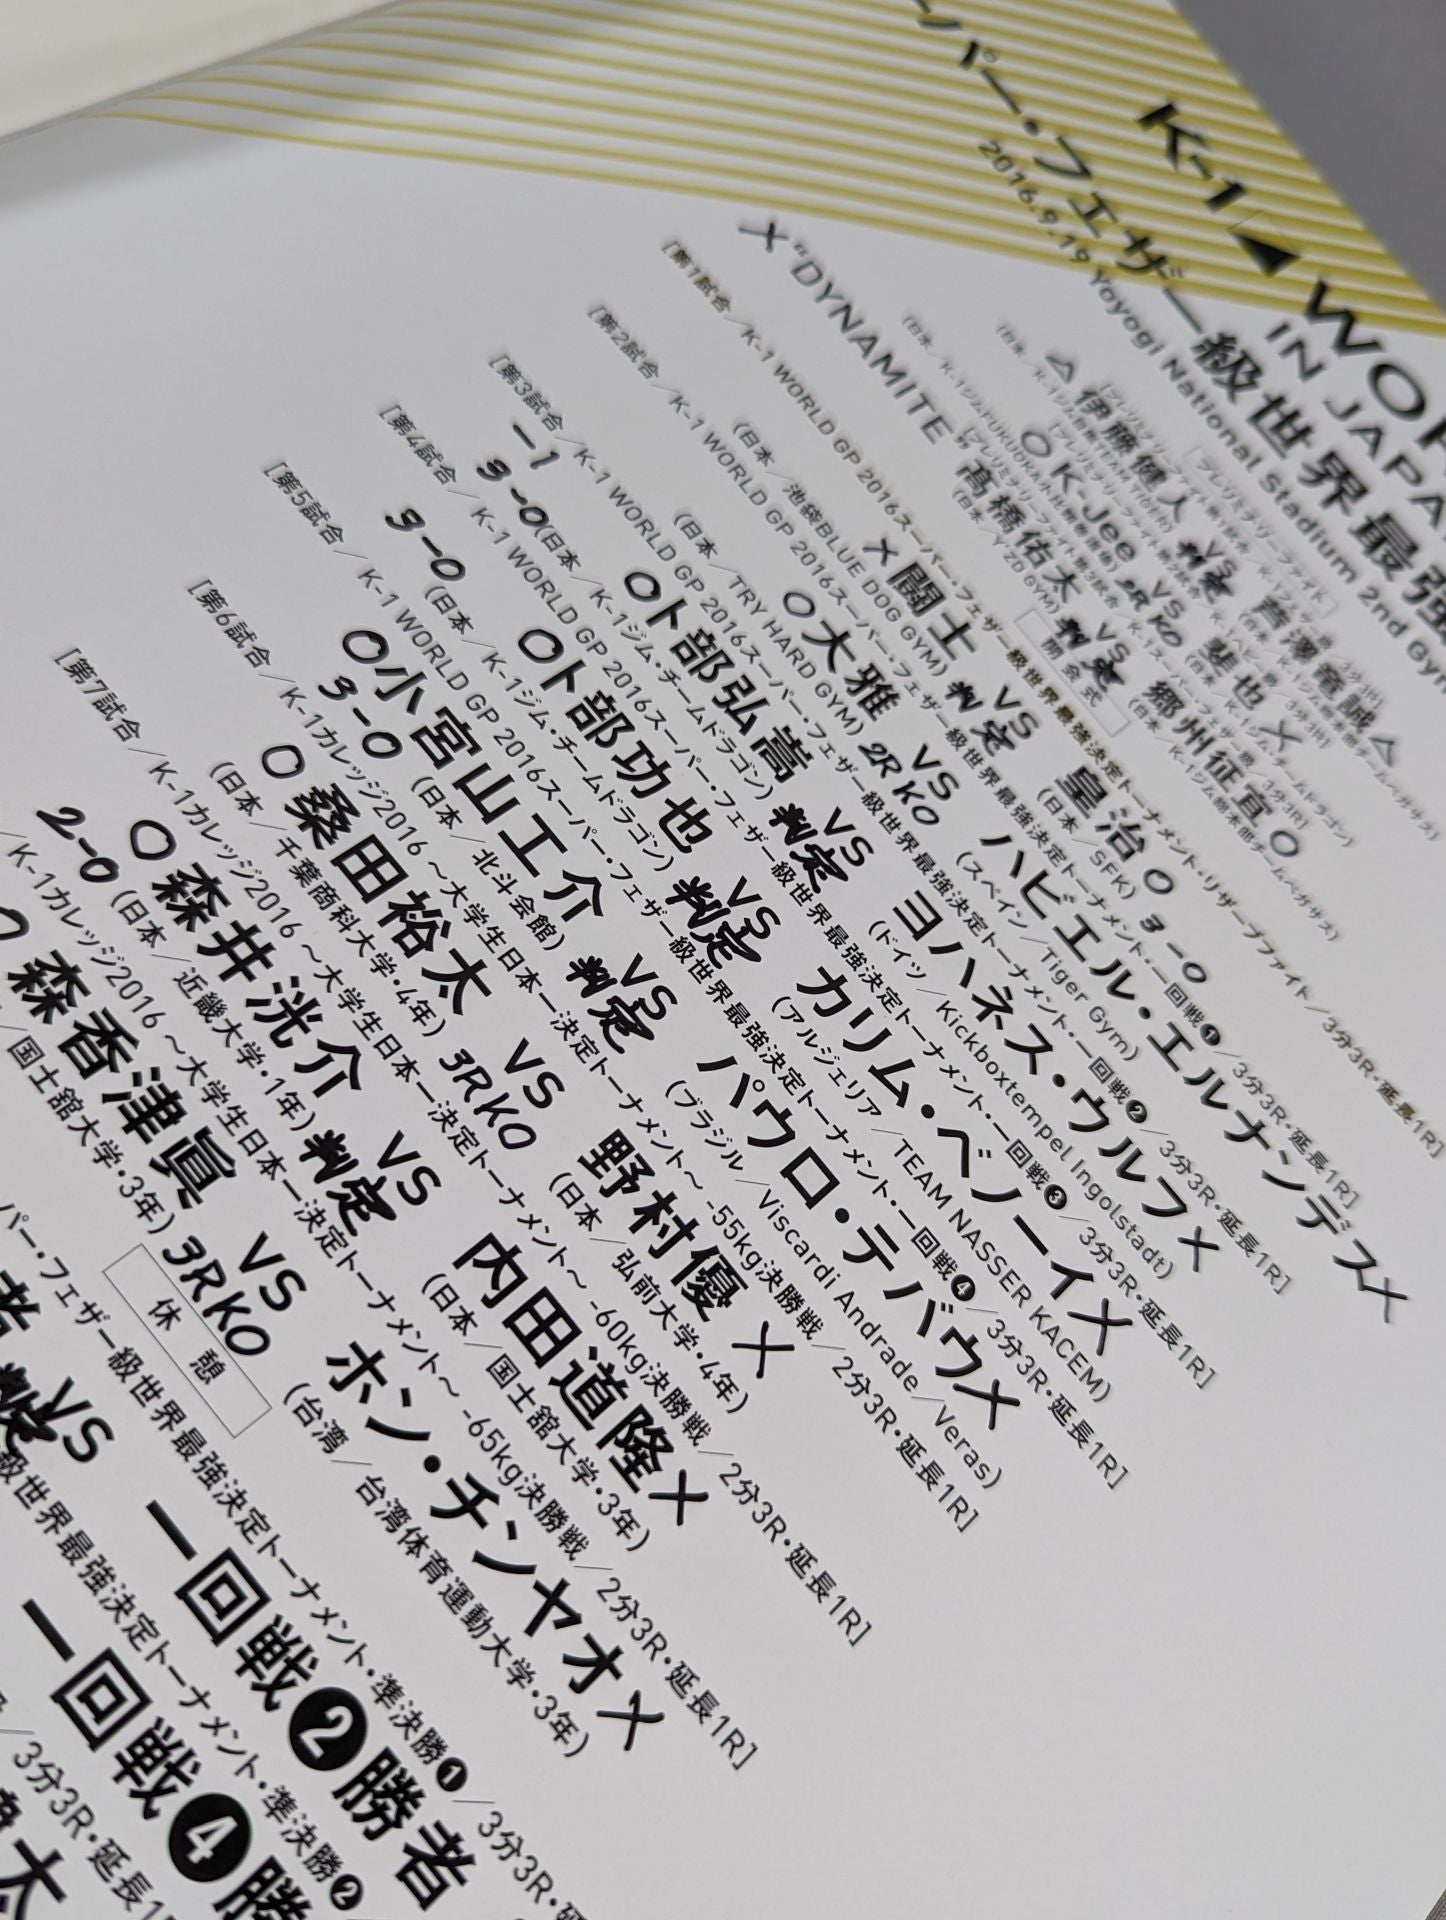 K-1 WOR
IN JAPA
ーパー・フェザー級世界最強
2016.9.19 Yoyogi National Stadium 2nd Gym
[プレリミナリーファイト]
△伊藤健人 VS 芦澤竜誠△
判定
[プレリミナリーファイト第2試合
○K-Jee VS 斐也×
2RKO
[プレリミナリーファイト第3試合
×"DYNAMITE"髙橋佑太 VS 郷州征宜○
(日本/Y'ZD GYM) 判定 (日本/K-1ジム相模大野
開会式
[第1試合/K-1 WORLD GP 2016スーパー・フェザー級世界最強決定トーナメント・リザーブファイト/3分3R・延長1R]
×闘士 VS 皇治○
(日本/池袋BLUE DOG GYM) 判定 (日本/SFK) 3-0
[第2試合/K-1 WORLD GP 2016スーパー・フェザー級世界最強決定トーナメント・一回戦❶/3分3R・延長1R]
○大雅 VS ハビエル・エルナンデス×
(日本/TRY HARD GYM) 2RKO (スペイン/Tiger Gym)
[第3試合/K-1 WORLD GP 2016スーパー・フェザー級世界最強決定トーナメント・一回戦❷/3分3R・延長1R]
-1 ○卜部弘嵩 VS ヨハネス・ウルフ×
3-0 (日本/K-1ジム・チームドラゴン) 判定 (ドイツ/Kickboxtempel Ingolstadt)
[第4試合/K-1 WORLD GP 2016スーパー・フェザー級世界最強決定トーナメント・一回戦❸/3分3R・延長1R]
○卜部功也 VS カリム・ベノーイ×
3-0 (日本/K-1ジム・チームドラゴン) 判定 (アルジェリア/TEAM NASSER KACEM)
[第5試合/K-1 WORLD GP 2016スーパー・フェザー級世界最強決定トーナメント・一回戦❹/3分3R・延長1R]
○小宮山工介 VS パウロ・テバウ×
3-0 (日本/北斗会館) 判定 (ブラジル/Viscardi Andrade/Veras)
[第6試合/K-1カレッジ2016～大学生日本一決定トーナメント～ -55kg決勝戦/2分3R・延長1R]
○桑田裕太 VS 野村優×
(日本/千葉商科大学・4年) 3RKO (日本/弘前大学・4年)
[第7試合/K-1カレッジ2016～大学生日本一決定トーナメント～ -60kg決勝戦/2分3R・延長1R]
○森井洸介 VS 内田道隆×
2-0 (日本/近畿大学・1年) 判定 (日本/国士舘大学・3年)
/K-1カレッジ2016～大学生日本一決定トーナメント～ -65kg決勝戦/2分3R・延長1R]
○森香津眞 VS ホン・チンヤオ×
/国士舘大学・3年) 3RKO (台湾/台湾体育運動大学・3年)
休憩
パー・フェザー級世界最強決定トーナメント・準決勝❶/3分3R・延
者 VS 一回戦❷勝者
判定
級世界最強決定トーナメント・準決勝❷
一回戦❹勝
/3分3R・延長1
太